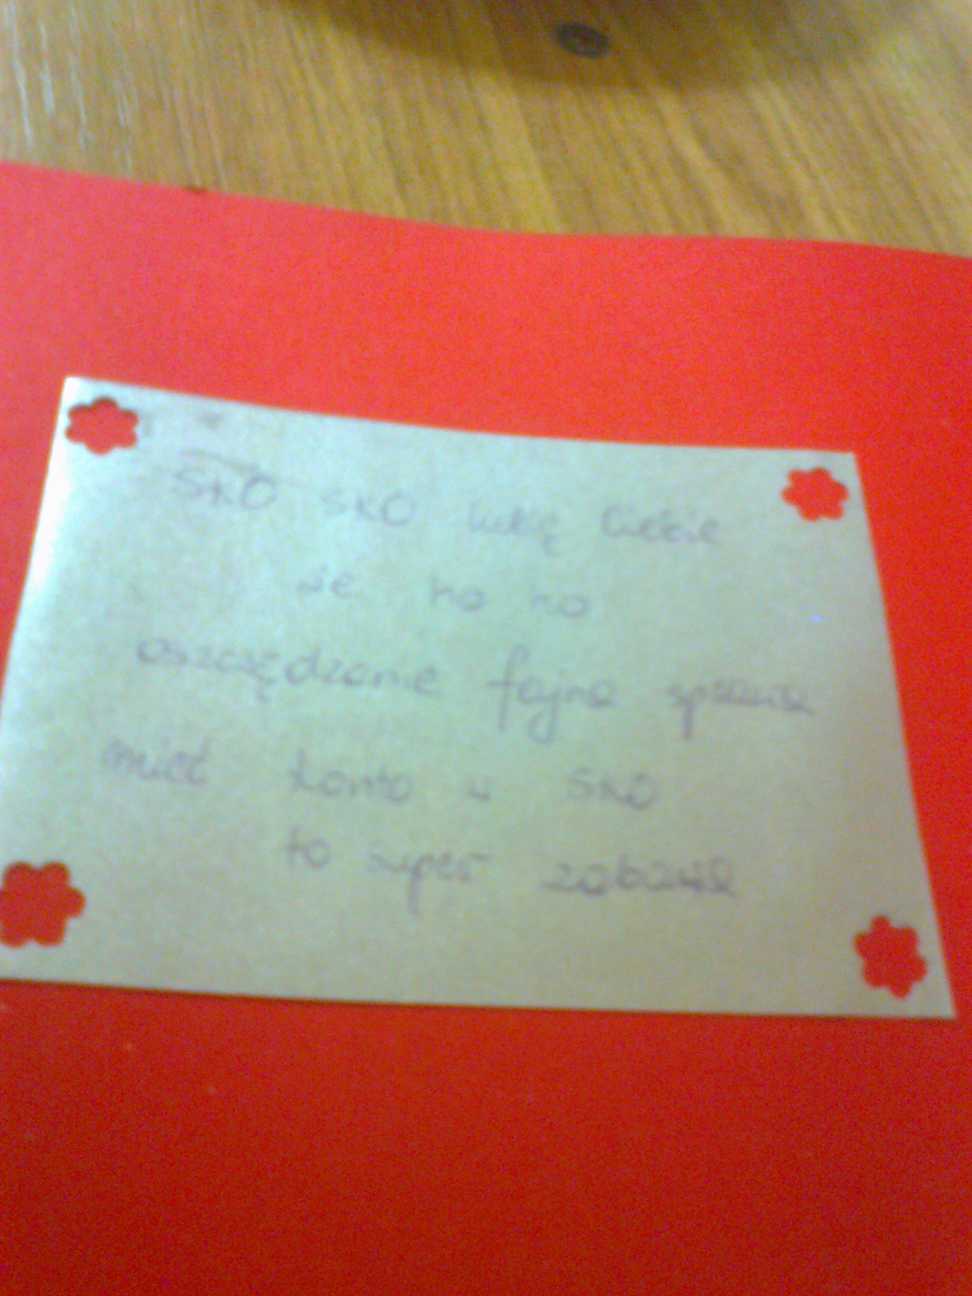 SKO SKO lubię Ciebie
że ho ho
oszczędzanie fajna sprawa
mieć konto w SKO
to super zabawa